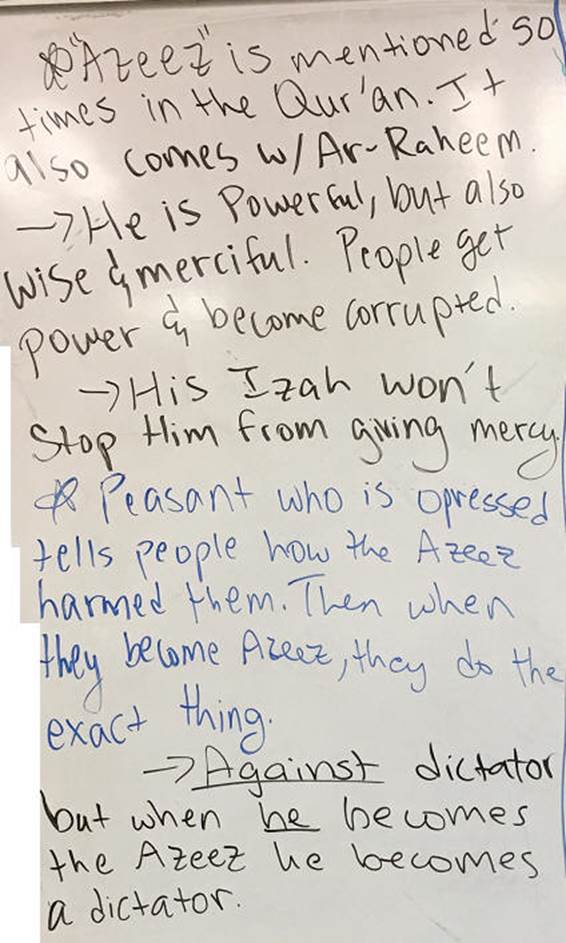 ☆ "Azeez" is mentioned 50
times in the Qur'an. It
also comes w/ Ar-Raheem.
→ He is Powerful, but also
wise & merciful. People get
power & become corrupted.
→ His Izah won't
Stop Him from giving mercy.
☆ Peasant who is opressed
tells people how the Azeez
harmed them. Then when
they become Azeez, they do the
exact thing.
→ Against dictator
but when he becomes
the Azeez he becomes
a dictator.